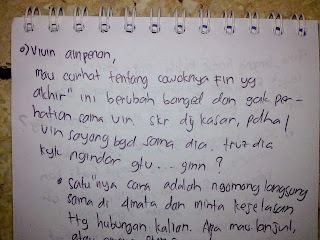 o) Vivin ampenan,
mau curhat tentang cowoknya vin yg
akhir" ini berubah banged dan gak per-
hatian sama vin. skr dy kasar, pdhal
vin sayang bgd sama dia. truz dia
kyk ngindar gtu... gmn?
• satu"nya cara adalah ngomong langsung
sama di dmata dan minta kejelasan
ttg hubungan kalian. Apa mau lanjut,
atau